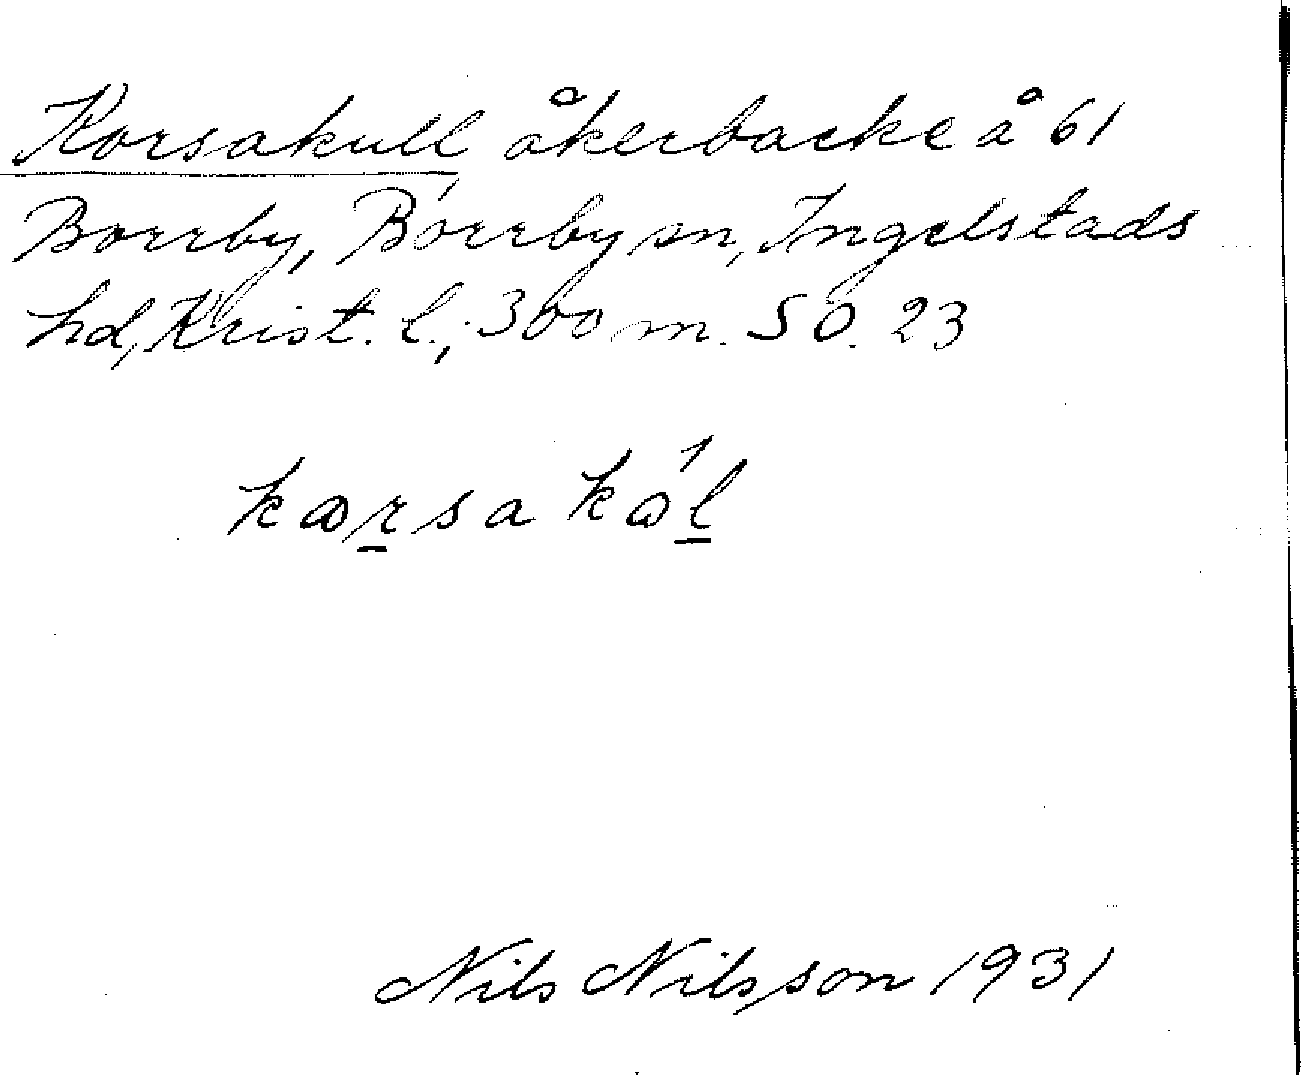 Korsakull åkerbacke å 61
Borrby, Borrby sn, Ingelstads
hd, Krist. l.; 300 m. SO. 23
kɷrsakɷ́l
Nils Nilsson 1931